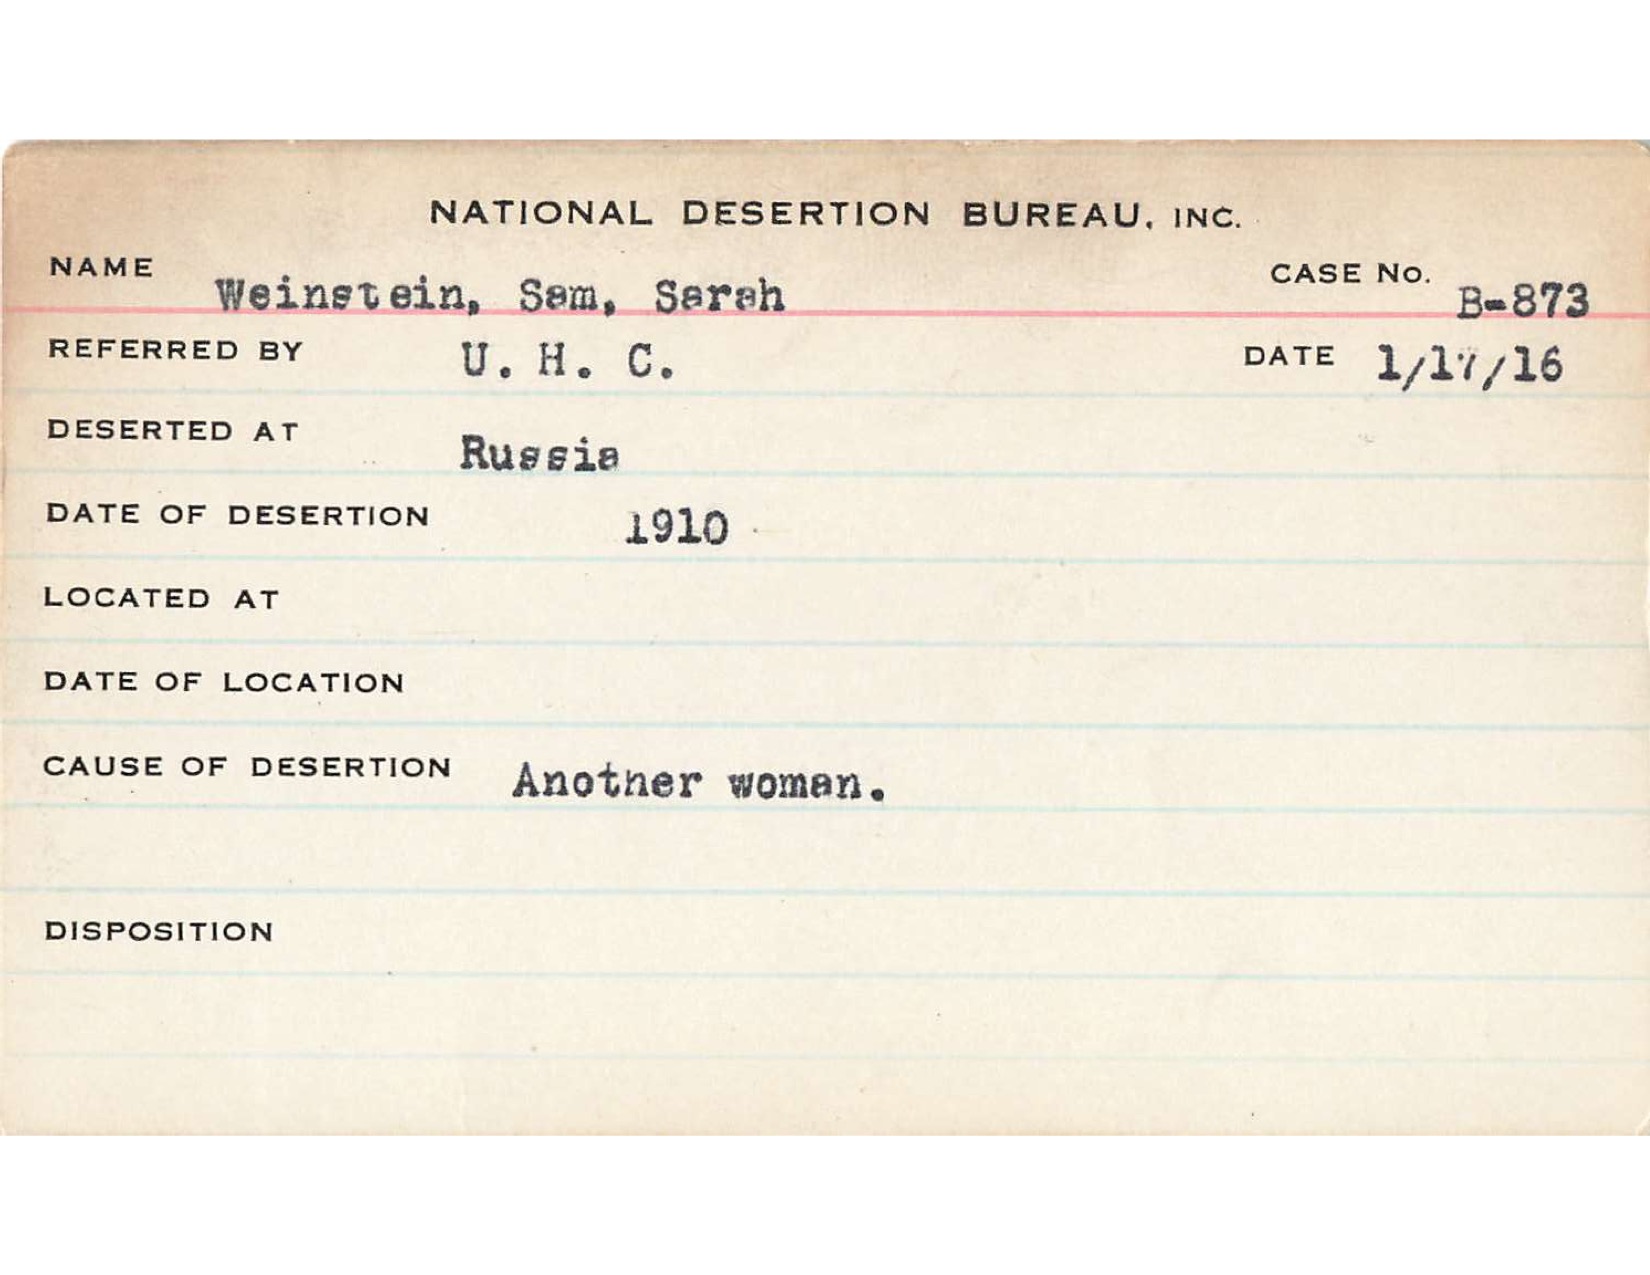 NATIONAL DESERTION BUREAU, INC.
NAME Weinstein, Sam, Sarah CASE No. B-873
REFERRED BY U. H. C. DATE 1/17/16
DESERTED AT Russia
DATE OF DESERTION 1910
LOCATED AT
DATE OF LOCATION
CAUSE OF DESERTION Another woman.
DISPOSITION